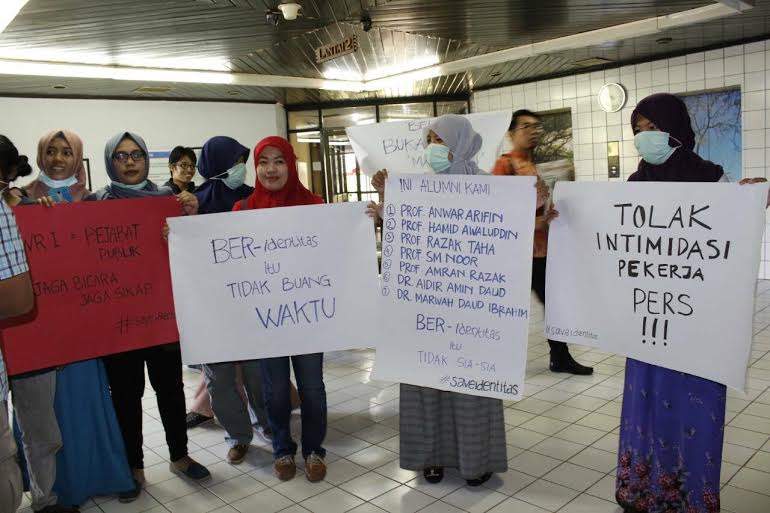 LANTAI 2
WR I = PEJABAT
PUBLIK
JAGA BICARA
JAGA SIKAP
BER-identitas
itu
TIDAK BUANG
WAKTU
BER
BUKA
INI ALUMNI KAMI
1 PROF. ANWAR ARIFIN
2 PROF. HAMID AWALUDDIN
3 PROF. RAZAK TAHA
4 PROF. SM NOOR
5 PROF. AMRAN RAZAK
6 DR. AIDIR AMIN DAUD
7 DR. MARWAH DAUD IBRAHIM
BER-identitas
itu
TIDAK SIA-SIA
#saveidentitas
TOLAK
INTIMIDASI
PEKERJA
PERS
!!!
#saveidentitas